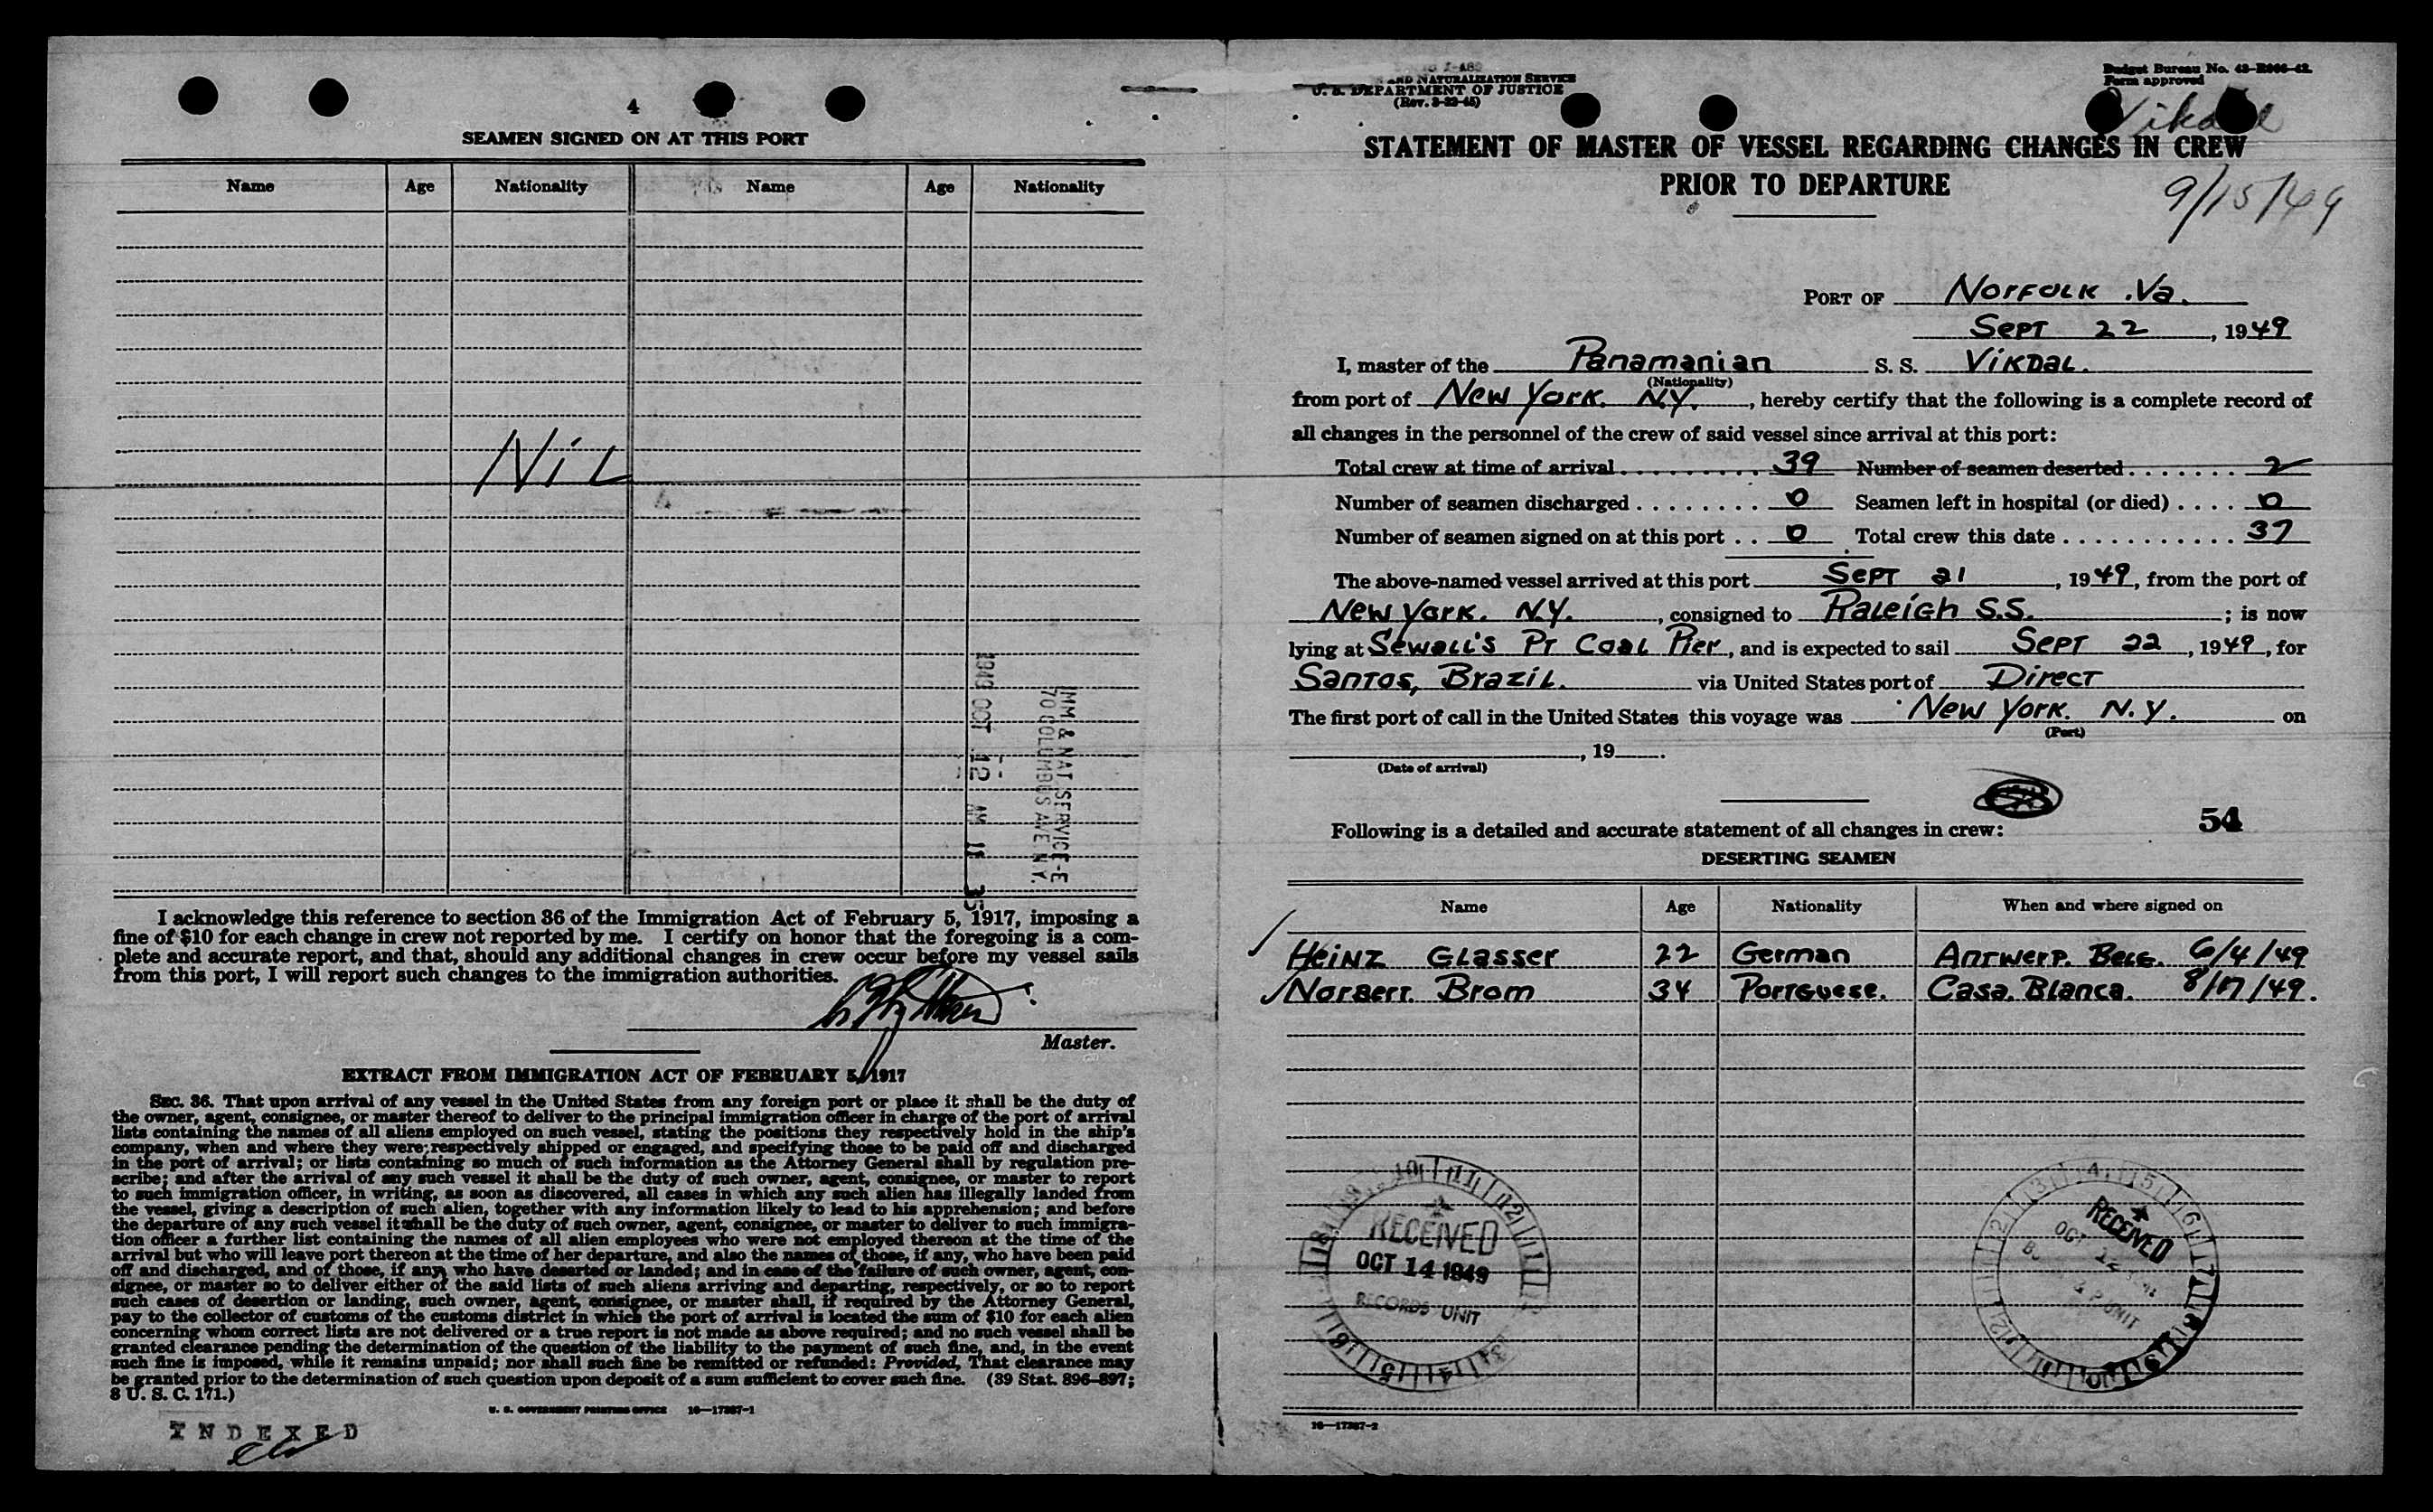 4
SEAMEN SIGNED ON AT THIS PORT
Name Age Nationality Name Age Nationality
NiL
1949 OCT 12 AM 11 35
IMM. & NAT. SERVICE-E
70 COLUMBUS AVE N.Y.
I acknowledge this reference to section 36 of the Immigration Act of February 5, 1917, imposing a
fine of $10 for each change in crew not reported by me. I certify on honor that the foregoing is a com-
plete and accurate report, and that, should any additional changes in crew occur before my vessel sails
from this port, I will report such changes to the immigration authorities.
Master.
EXTRACT FROM IMMIGRATION ACT OF FEBRUARY 5, 1917
SEC. 36. That upon arrival of any vessel in the United States from any foreign port or place it shall be the duty of
the owner, agent, consignee, or master thereof to deliver to the principal immigration officer in charge of the port of arrival
lists containing the names of all aliens employed on such vessel, stating the positions they respectively hold in the ship's
company, when and where they were respectively shipped or engaged, and specifying those to be paid off and discharged
in the port of arrival; or lists containing so much of such information as the Attorney General shall by regulation pre-
scribe; and after the arrival of any such vessel it shall be the duty of such owner, agent, consignee, or master to report
to such immigration officer, in writing, as soon as discovered, all cases in which any such alien has illegally landed from
the vessel, giving a description of such alien, together with any information likely to lead to his apprehension; and before
the departure of any such vessel it shall be the duty of such owner, agent, consignee, or master to deliver to such immigra-
tion officer a further list containing the names of all alien employees who were not employed thereon at the time of the
arrival but who will leave port thereon at the time of her departure, and also the names of those, if any, who have been paid
off and discharged, and of those, if any, who have deserted or landed; and in case of the failure of such owner, agent, con-
signee, or master so to deliver either of the said lists of such aliens arriving and departing, respectively, or so to report
such cases of desertion or landing, such owner, agent, consignee, or master shall, if required by the Attorney General,
pay to the collector of customs of the customs district in which the port of arrival is located the sum of $10 for each alien
concerning whom correct lists are not delivered or a true report is not made as above required; and no such vessel shall be
granted clearance pending the determination of the question of the liability to the payment of such fine, and, in the event
such fine is imposed, while it remains unpaid; nor shall such fine be remitted or refunded: Provided, That clearance may
be granted prior to the determination of such question upon deposit of a sum sufficient to cover such fine. (39 Stat. 896-897;
8 U. S. C. 171.)
U. S. GOVERNMENT PRINTING OFFICE 16—17267-1
INDEXED
AND NATURALIZATION SERVICE
U. S. DEPARTMENT OF JUSTICE
(Rev. 3-22-45)
Budget Bureau No. 43-R006-42.
Form approved
Vikdal
STATEMENT OF MASTER OF VESSEL REGARDING CHANGES IN CREW
PRIOR TO DEPARTURE
9/15/49
PORT OF Norfolk .Va.
Sept 22, 1949
I, master of the Panamanian S. S. Vikdal.
(Nationality)
from port of New York. N.Y., hereby certify that the following is a complete record of
all changes in the personnel of the crew of said vessel since arrival at this port:
Total crew at time of arrival 39 Number of seamen deserted 2
Number of seamen discharged 0 Seamen left in hospital (or died) 0
Number of seamen signed on at this port 0 Total crew this date 37
The above-named vessel arrived at this port Sept 21, 1949, from the port of
New York. N.Y., consigned to Raleigh S.S.; is now
lying at Sewall's Pt Coal Pier, and is expected to sail Sept 22, 1949, for
Santos, Brazil. via United States port of Direct
The first port of call in the United States this voyage was New York. N.Y. on
(Port)
, 19 .
(Date of arrival)
54
Following is a detailed and accurate statement of all changes in crew:
DESERTING SEAMEN
Name Age Nationality When and where signed on
Heinz Glasser 22 German Antwerp. Belg. 6/4/49
Norbert. Brom 34 Portguese. Casa. Blanca. 8/17/49.
RECEIVED
OCT 14 1949
RECORDS UNIT
RECEIVED
OCT 12
UNIT
16—17267-2